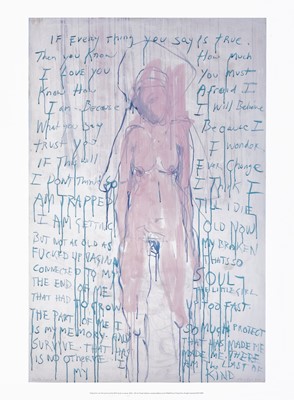 IF EVERY THING YOU SAY IS TRUE.
Then you Know How much
I Love You You Must
Know How Afraid I
I Am. Because I Will Believe
What you Say Because I
trust you I Wonder
IF This ill Ever Change
I DON'T THINK SO I Think I
AM TRAPPED TILL I DIE
I AM GETTING OLD NOW
BUT NOT AS OLD AS MY BROKEN
FUCKED UP VAGINA THATS SO
CONNECTED TO MY SOUL
THE END OF ME THE LITTLE GIRL
THAT HAD TO GROW UP TOO FAST
THE PART OF ME I SO MUCH PROTECT
IS MY MEMORY AND THAT HAS MADE ME
SURVIVE. THAT HAS MADE ME. THERE
IS NO OTHER I'VE. AM THE LAST OF
MY KIND